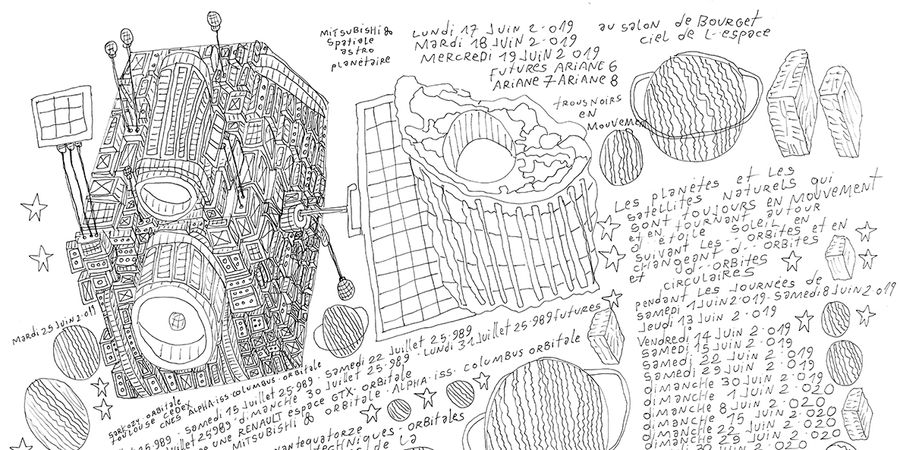 MITSUBISHI 80
Spatiale
astro
planétaire
LUNDI 17 JUIN 2.019
MARDI 18 JUIN 2.019
MERCREDI 19 JUIN 2.019
FUTURES ARIANE 6
ARIANE 7 ARIANE 8
au SALON de BOURGET
CIEL DE L-ESPACE
TROUS NOIRS
EN
MOUVEMENT
Les planètes et Les
Satellites NATURELS qui
SONT TOUJOURS EN MOUVEMENT
et EN TOURNANT AUTOUR
d-ÉTOILE SOLEIL EN
SUIVANT LES-ORBITES et en
CHANGEANT d-ORBITES
et d-ORBITES
CIRCULAIRES
PENDANT Les JOURNÉES de
Samedi 1 JUIN 2.019. Samedi 8 JUIN 2.019
Jeudi 13 JUIN 2.019
Vendredi 14 JUIN 2.019
Samedi 15 JUIN 2.019
Samedi 22 JUIN 2.019
Samedi 29 JUIN 2.019
dimanche 30 JUIN 2.019
dimanche 1 JUIN 2.020
dimanche 8 JUIN 2.020
dimanche 15 JUIN 2.020
dimanche 22 JUIN 2.020
dimanche 29 JUIN 2.020
30 JUIN 2.020
Mardi 25 JUIN 2.019
SARKOZY ORBITALE
TOULOUSE CEDEX
CNES ALPHA-ISS COLUMBUS-ORBITALE
25.989. Samedi 15 Juillet 25.989. Samedi 22 Juillet 25.989
Juillet 25.989. dimanche 30 Juillet 25.989. LUNDI 31 Juillet 25.989 futures
une RENAULT ESPACE GTX-ORBITALE
MITSUBISHI 80 ORBITALE. ALPHA-ISS. COLUMBUS ORBITALE
TECHNIQUES-ORBITALES
de la